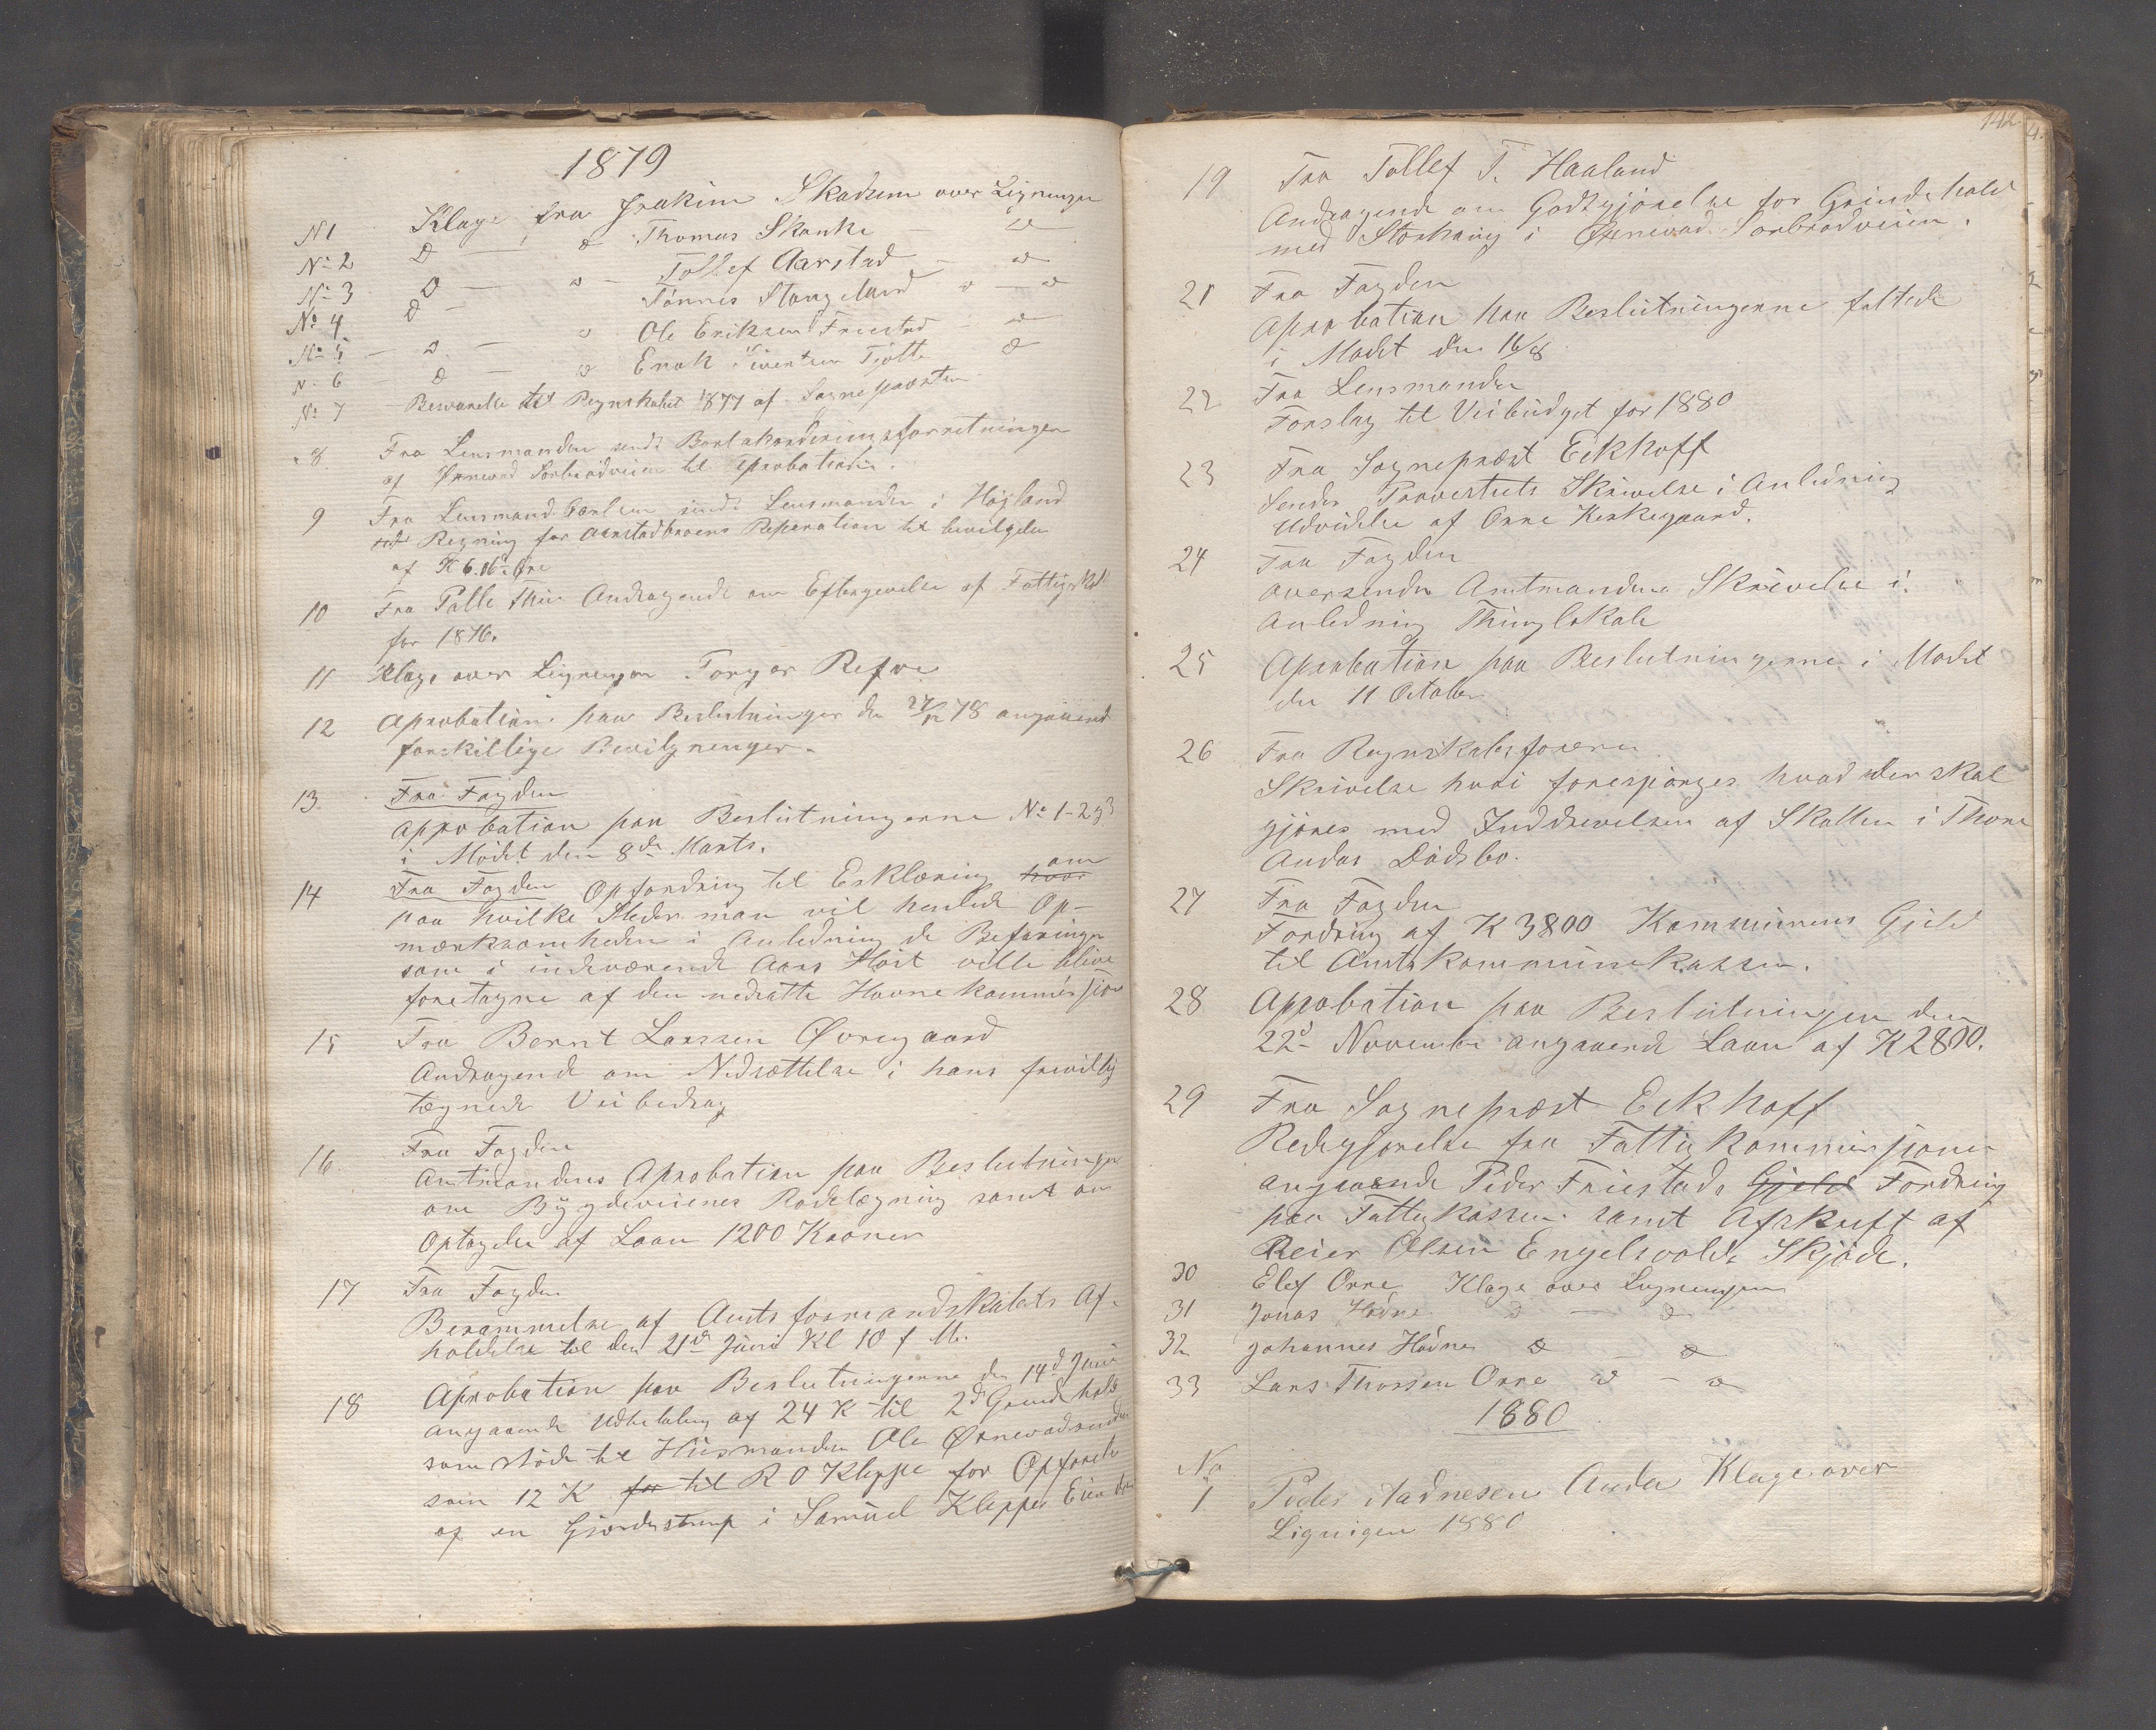 1879
N 1 Klage fra Joakim Skadsem over Ligningen
No 2 D — " D Thomas Skanke — D
No 3 D — D — Tollef Aarstad — D
No 4 D — Tönnes Stangeland D — D
No 5 — D — D Ole Eriksen Friestad — D
N. 6 — D — D Enok Sivertsen Tjøtte D
No 7 Besvarelse til Regnskabet 1877 af Sognepræsten
8 Fra Lensmanden sendt Bortakorderingsforretningen
af Ørnevad Sorbrödveien til Aprobation.
9 Fra Lensmand Carlsen sendt Lensmanden i Højland
Regning for Aarstadbroens Reperation til bevilgelse
af K 6.16 Øre
10 Fra Palle Thu Andragende om Eftergivelse af Fattigskat
for 1876.
11 Klage over Ligningen Torger Refve
12 Aprobation paa Beslutninger den 27/12 78 angaaend
forskillige Bevilgninger.
13 Fra Fogden
Approbation paa Beslutningerne No 1-2 g 3
i Mödet den 8de Marts.
14 Fra Fogden Opfordring til Erklæring hvor om
paa hvilke Steder man vil henlede Op-
mærksomheden i Anledning de Befaringer
som i indeværende Aars Höst ville blive
foretagne af den nedsatte Havnekommisjion
15 Fra Bernt Larssen Øvregaard
Andragende om Nedsættelse i hans frivillig
tegnede Veibedrag
16 Fra Fogden
Amtmandens Aprobation paa Beslutninger
om Bygdeveienes Rodelægning samt om
Optagelse af Laan 1200 Kroner
17 Fra Fogden
Berammelse af Amtsformandskabets Af-
holdelse til den 21de Juni Kl 10 f M.
18 Aprobation paa Beslutningerne den 14d Juni
angaaende Udbetaling af 24 K til 2d Grindehold
som stöde til Husmanden Ole Ørnevad
som 12 K for til R O Kleppe for Opförelse
af en Gjordestump i Samuel Kleppes Eiendom
142
19 Fra Tollef T. Haaland
Andragende om Godtgjörelse for Grindehold
med Storhaug i Ørnevad Sorbrödveien.
21 Fra Fogden
Aprobation paa Beslutningerne fattede
i Mödet den 16/8
22 Fra Lensmanden
Forslag til Veibudget for 1880
23 Fra Sognepræst Eckhoff
Sender Provestiets Skrivelse i Anledning
Udvidelse af Orre Kirkegaard.
24 Fra Fogden
oversender Amtmandens Skrivelse i
Anledning Thinglokale
25 Aprobation paa Beslutningerne i Mödet
den 11 October
26 Fra Regnskabsföreren
Skrivelse hvori forespörges hvad der skal
gjöres med Inddrivelsen af Skatten i Thore
Andas Dödsbo.
27 Fra Fogden
Fordring af K 3800 Kommunens Gjeld
til Amtskommunekassen.
28 Aprobation paa Beslutningen den
22d November angaaende Laan af K 2800.
29 Fra Sognepræst Eckhoff
Redegjörelse fra Fattigkommissjonen
angaaende Peder Friestads Gjeld Fordring
paa Fattigkassen samt Afskrift af
Reier Olsen Engelsvolds Skjöde.
30 Elef Orre Klage over Ligningen
31 Jonas Hödne D — D
32 Johannes Hödne D — D
33 Lars Thorsen Orre D — D
1880
No
1 Peder Aadnesen Anda Klage over
Lignigen 1880